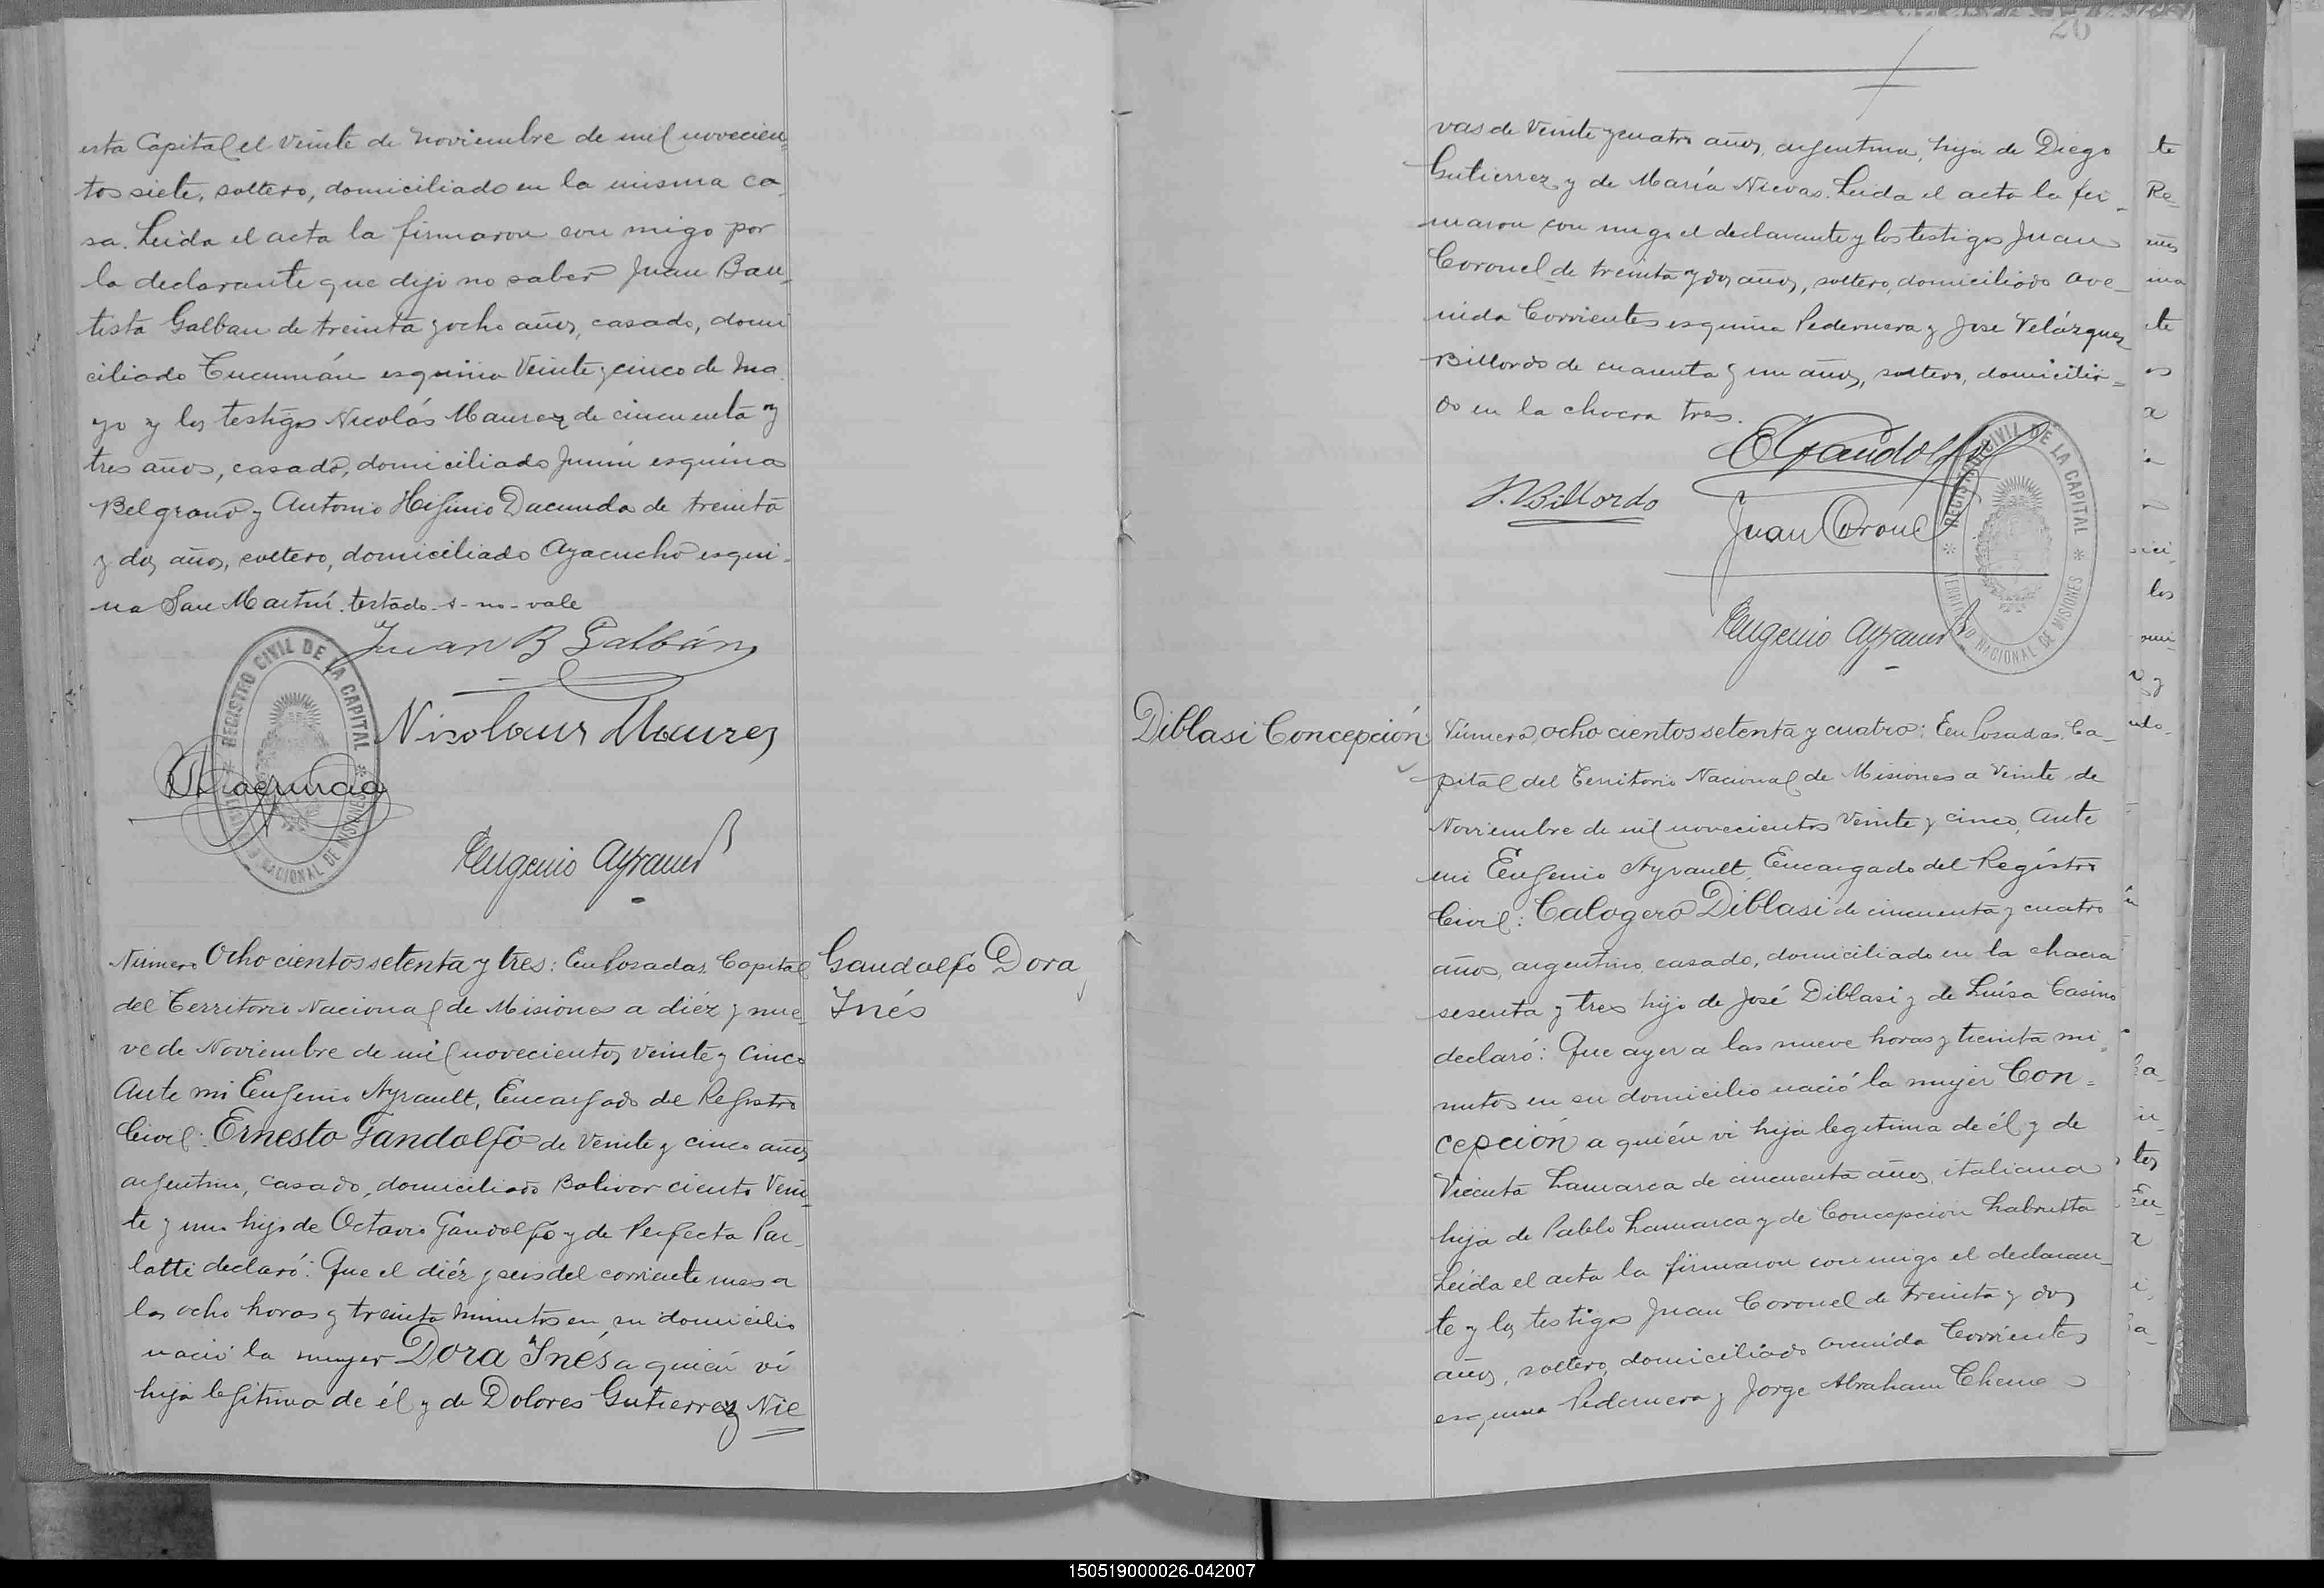 esta Capital el veinte de noviembre de mil novecien=
tos siete, soltero, domiciliado en la misma ca_
sa. Leida el acta la firmaron con migo por
la declarante que dijo no saber Juan Bau_
tista Galban de treinta y ocho años, casado, domi
ciliado Tucumán esquina Veinte y cinco de Ma_
yo y los testigos Nicolás Maurez de cincuenta y
tres años, casado, domiciliado Junín esquina
Belgrano y Antonio Higinio Dacunda de treinta
y dos años, soltero, domiciliado Ayacucho esqui_
na San Martín. testado - s - no - vale
Juan B Galbán
REGISTRO CIVIL DE LA CAPITAL
NACIONAL DE MISIONES
Nicolaus Maurez
Eugenio Ayrault
Número Ocho cientos setenta y tres: En Posadas, Capital
del Territorio Nacional de Misiones a diéz y nue_
ve de Noviembre de mil novecientos veinte y cinco
Ante mi Eugenio Ayrault, Encargado del Registro
Civil: Ernesto Gandolfo de veinte y cinco años
argentino, casado, domiciliado Bolivar ciento Vein_
te y uno hijo de Octavio Gandolfo y de Perfecta Par_
latti declaró: Que el diéz y seis del corriente mes a
las ocho horas y treinta minutos en su domicilio
nació la mujer Dora Inés a quién ví
hija legítima de él y de Dolores Gutierrez Nie
Gandolfo Dora
Inés
20
vas de veinte y cuatro años, argentina, hija de Diego
Gutierrez y de María Nievas. Leida el acta la fir_
maron con migo el declarante y los testigos Juan
Coronel de treinta y dos años, soltero, domiciliado Ave_
nida Corrientes esquina Pedernera y Jose Velázquez
Billordo de cuarenta y un años, soltero, domicilia=
do en la chacra tres.
E Gandolfo
J. V. Billordo
Juan Coronel
REGISTRO CIVIL DE LA CAPITAL
TERRITORIO NACIONAL DE MISIONES
Eugenio Ayrault
Diblasi Concepción
Número, ocho cientos setenta y cuatro: En Posadas, Ca_
pital del Territorio Nacional de Misiones a veinte de
Noviembre de mil novecientos veinte y cinco, Ante
mi Eugenio Ayrault, Encargado del Registro
Civil: Calogero Diblasi de cincuenta y cuatro
años, argentino, casado, domiciliado en la chacra
sesenta y tres hijo de José Diblasi y de Luisa Casino
declaró: Que ayer a las nueve horas y treinta mi_
nutos en su domicilio nació la mujer Con=
cepción a quién ví hija legitima de él y de
Vicenta Lamarca de cincuenta años, italiana
hija de Pablo Lamarca y de Concepción Labrutta
Leida el acta la firmaron con migo el declaran_
te y los testigos Juan Coronel de treinta y dos
años, soltero, domiciliado avenida Corrientes
esquina Pedernera y Jorge Abraham Cheme
150519000026-042007